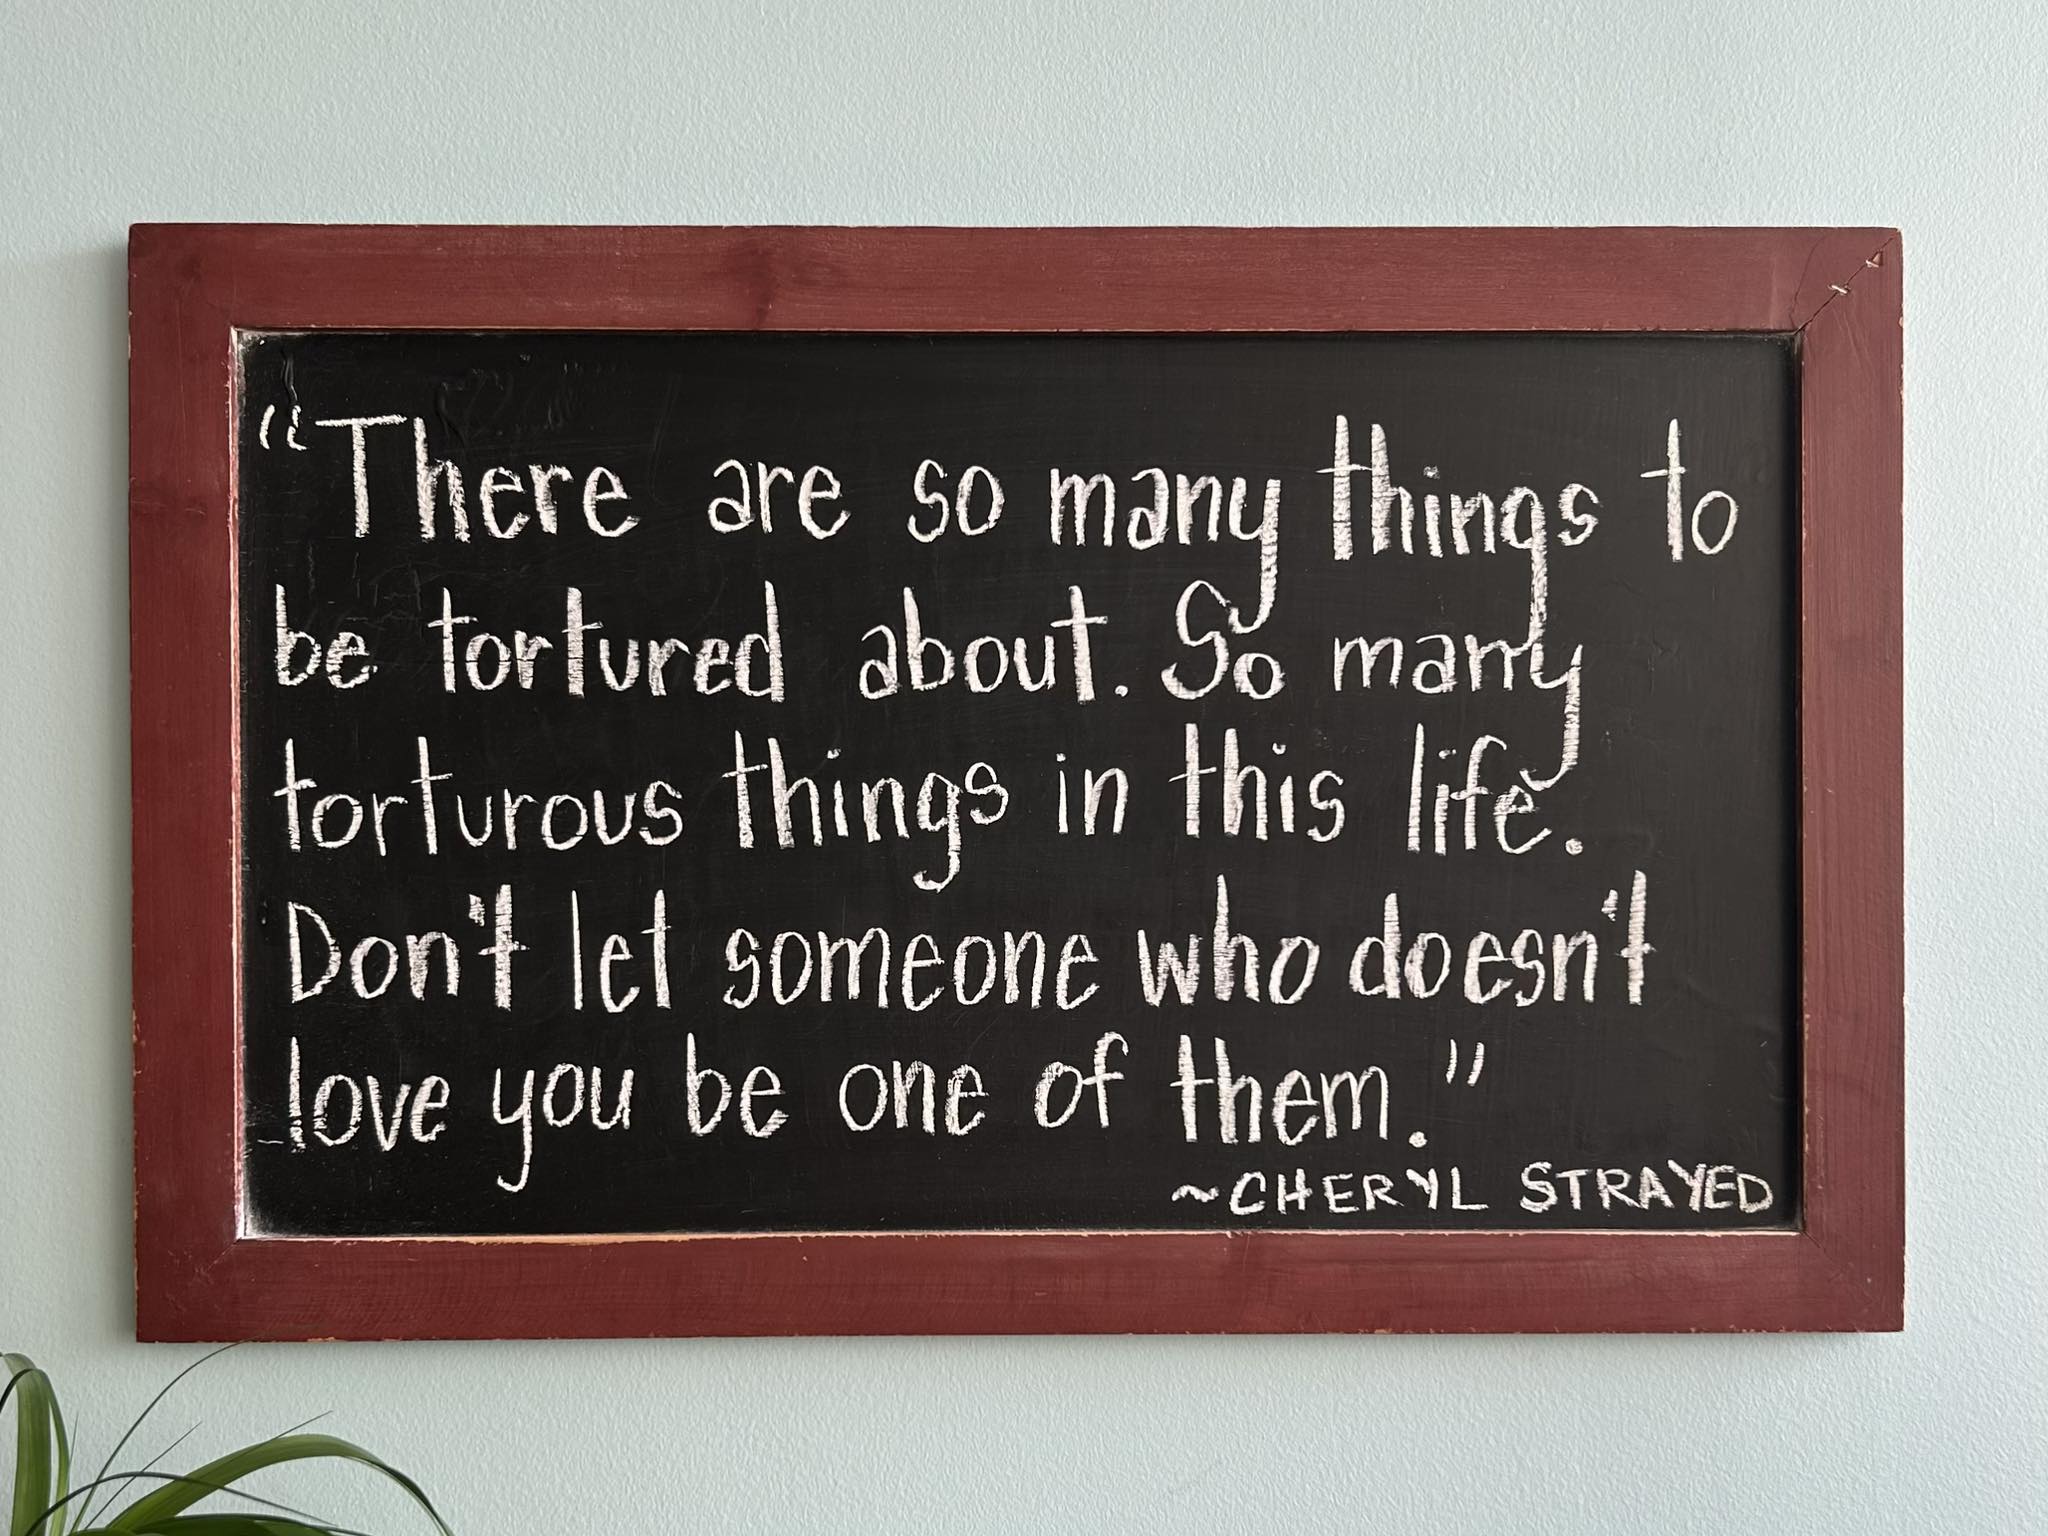 “There are so many things to
be tortured about. So many
torturous things in this life.
Don't let someone who doesn't
love you be one of them.”
~CHERYL STRAYED